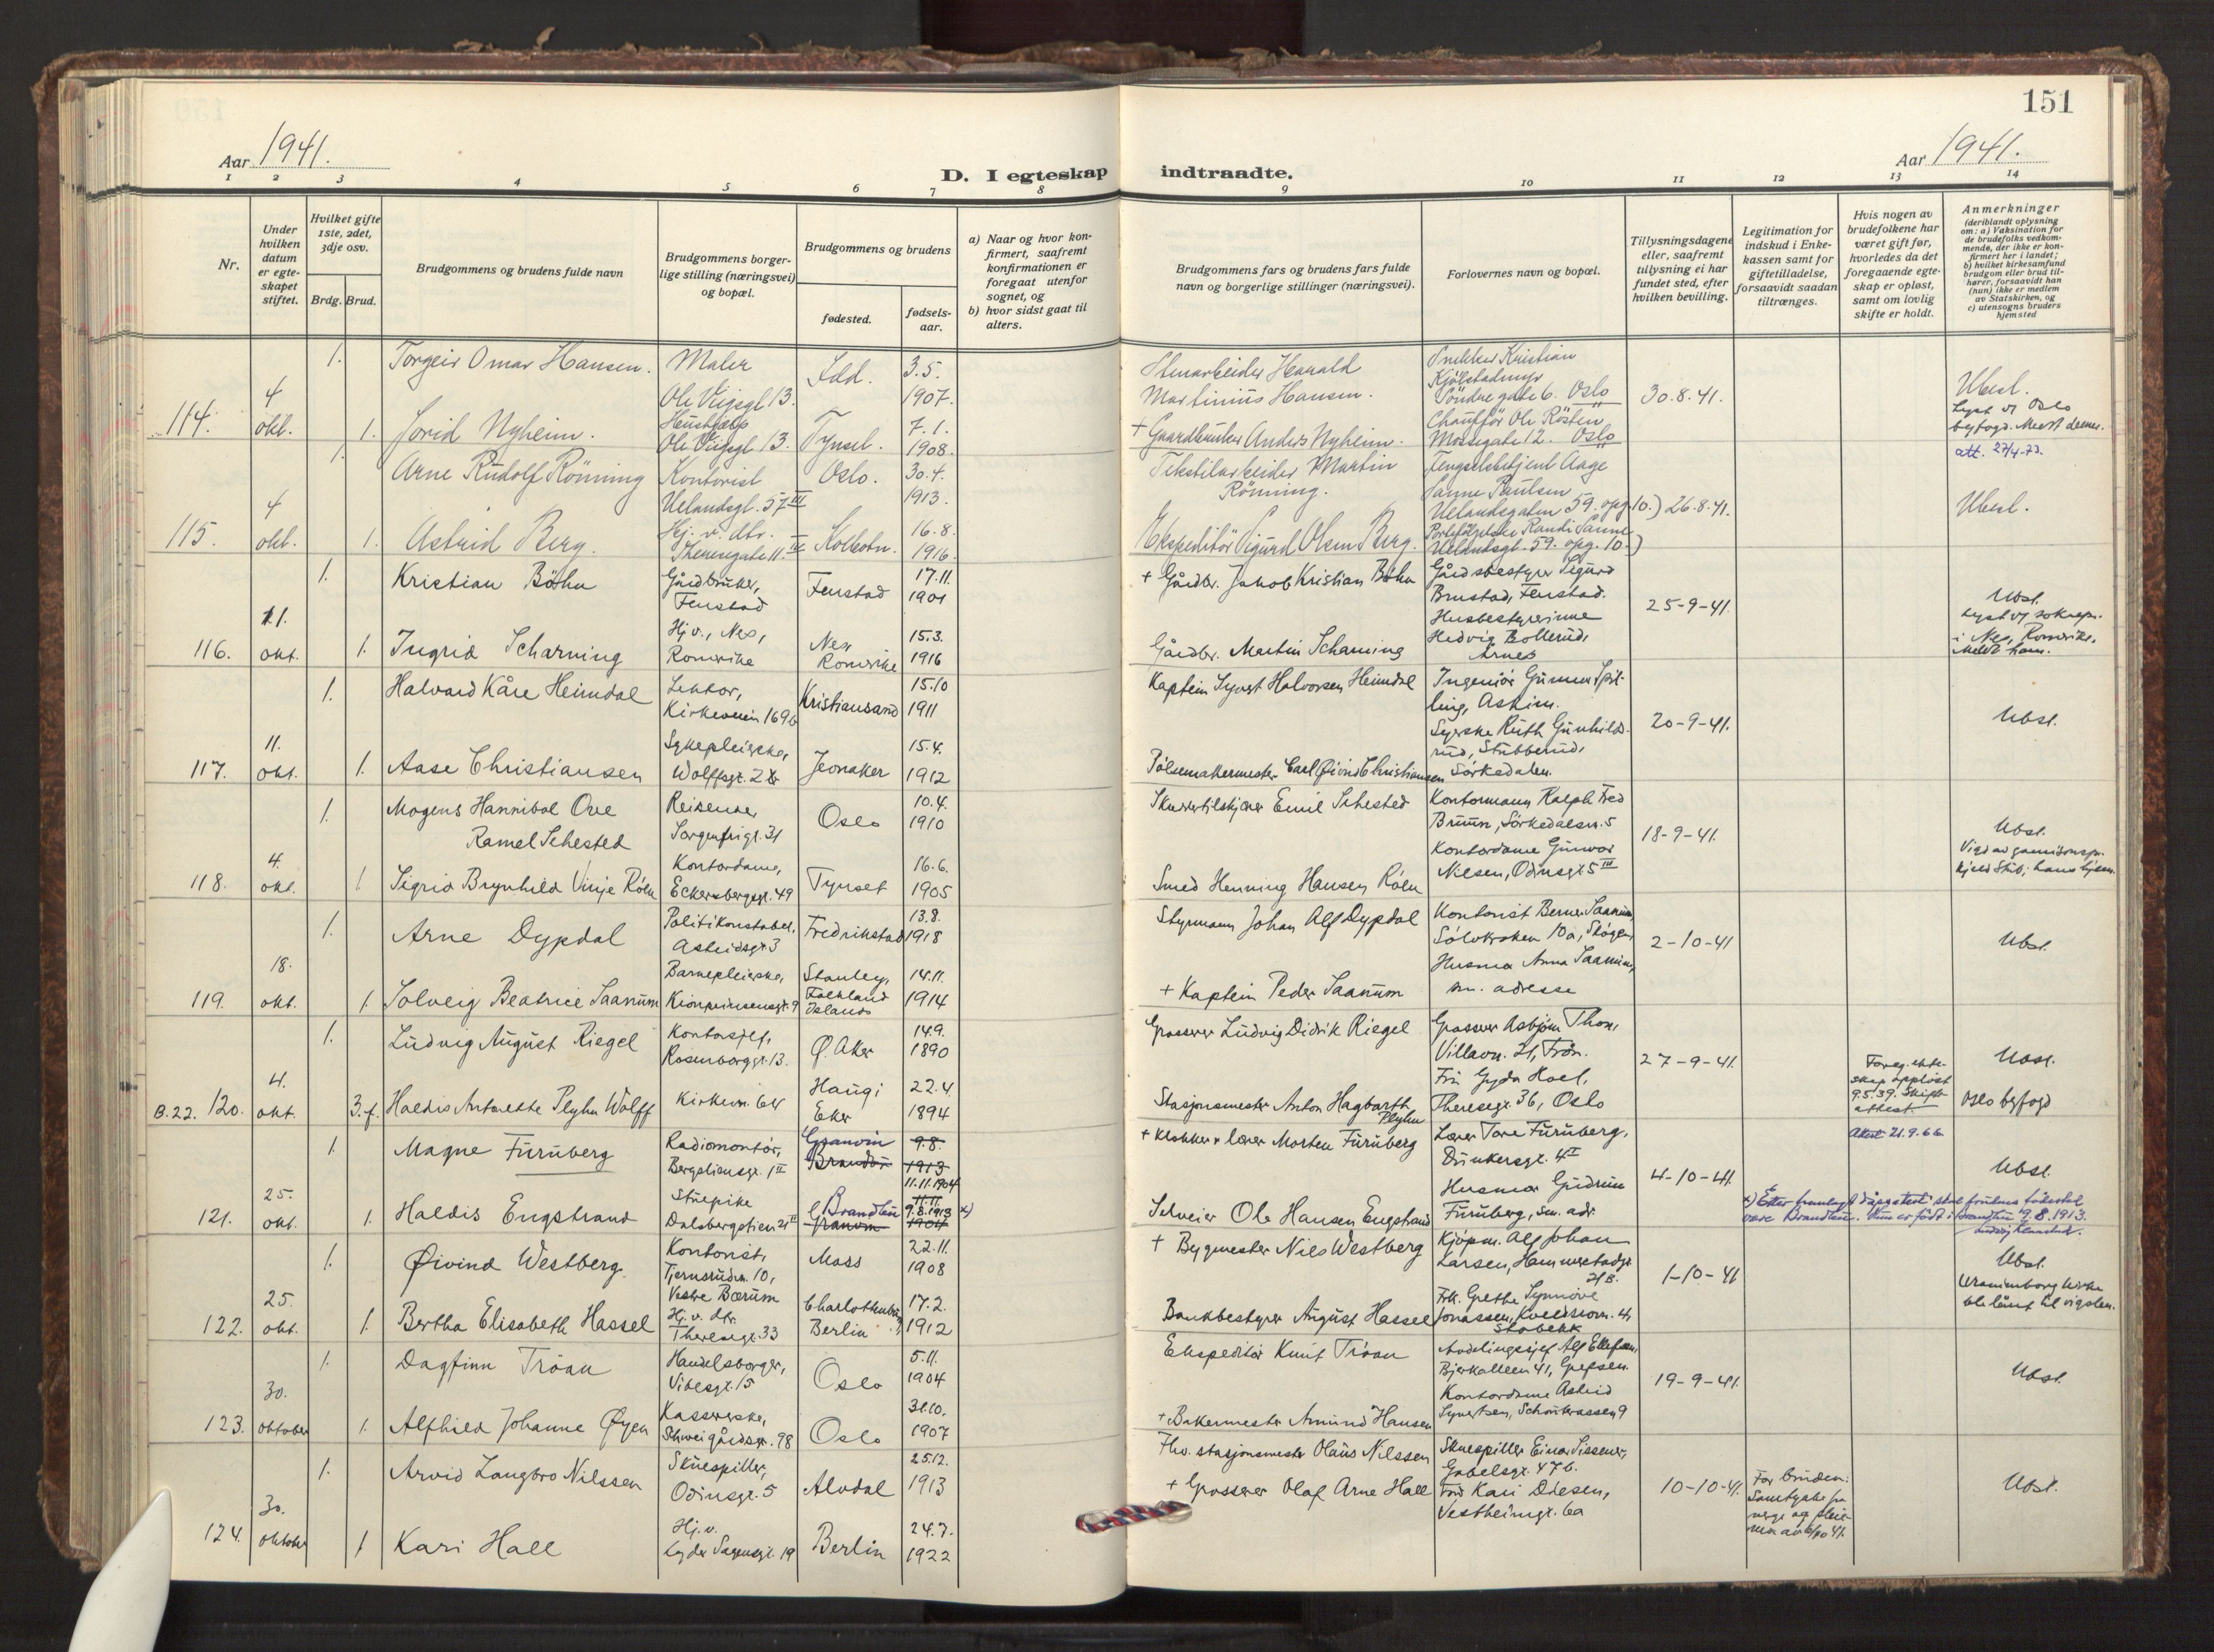 151
Aar 1941.
Aar 1941.
D. I egteskap indtraadte.
1 2 3 4 5 6 7 8 9 10 11 12 13 14
Nr.
Under hvilken datum er egteskapet stiftet.
Hvilket gifte 1ste, 2det, 3dje osv.
Brdg. Brud.
Brudgommens og brudens fulde navn
Brudgommens borgerlige stilling (næringsvei) og bopæl.
Brudgommens og brudens
fødested.
fødselsaar.
a) Naar og hvor konfirmert, saafremt konfirmationen er foregaat utenfor sognet, og
b) hvor sidst gaat til alters.
Brudgommens fars og brudens fars fulde navn og borgerlige stillinger (næringsvei).
Forlovernes navn og bopæl.
Tillysningsdagene eller, saafremt tillysning ei har fundet sted, efter hvilken bevilling.
Legitimation for indskud i Enkekassen samt for giftetilladelse, forsaavidt saadan tiltrænges.
Hvis nogen av brudefolkene har været gift før, hvorledes da det foregaaende egteskap er opløst, samt om lovlig skifte er holdt.
Anmerkninger (deriblandt oplysning om: a) Vaksination for de brudefolks vedkommende, der ikke er konfirmert her i landet; b) hvilket kirkesamfund brudgom eller brud tilhører, forsaavidt han (hun) ikke er medlem av Statskirken, og c) utensogns bruders hjemsted
1. Torgeir Omar Hansen. Maler Ole Vigsgt 13. Idd. 3.5. 1907. Stenarbeider Harald Martinius Hansen. Snekker Kristian Kjölstadmyr Söndregate 6. Oslo 30.8.41. Ubesl.
114. 4 okt. 1. Jorid Nyheim. Hushjelp Ole Vigsgt 13. Tynset. 7.1. 1908. + Gaardbruker Anders Nyheim. Chauffør Ole Rösten Mossegate 12. Oslo Lyst v/ Oslo byfogd. Meldt denne. att. 27/4-73.
1. Arne Rudolf Rönning Kontorist Uelandsgt. 57 III Oslo. 30.4. 1913. Tekstilarbeider Martin Rönning. Fengselsbetjent Aage Sanne Paulsen Uelandsgaten 59. opg. 10.) 26.8.41. Ubesl.
115. 4 okt. 1. Astrid Berg. Hj. v. dtr. Theresegate 11 IV Kolbotn. 16.8. 1916. Ekspeditör Sigurd Olsen Berg. Randi Sanne Uelandsgt. 59. opg. 10.)
1. Kristian Böhn Gårdbruker, Fenstad Fenstad 17.11. 1901 + Gårdbr. Jakob Kristian Böhn Gårdsbestyrer Sigurd Brustad, Fenstad. 25-9-41. Ubsl.
116. 11. okt. 1. Ingrid Scharning Hj. v., Nes, Romerike Nes Romerike 15.3. 1916 Gårdbr. Martin Scharning Husbestyrerinne Hedvig Bollerud, Årnes Lyst v/ soknepr. i Nes, Romerike. Meldt ham.
1. Halvard Kåre Heimdal Lektor, Kirkeveien 169b Kristiansand 15.10 1911 Kaptein Syvert Halvorsen Heimdal Ingeniör Gunnar Spilling, Askim. 20-9-41. Ubsl.
117. 11. okt. 1. Aase Christiansen Sykepleierske, Wolffsgt. 2b Jevnaker 15.4. 1912 Pölsemakermester Carl Øivind Christiansen Syerske Ruth Gunhildrud, Stubberud, Sörkedalen.
1. Mogens Hannibal Ove Ramel Sehested Reisende, Sorgenfrigt. 31 Oslo 10.4. 1910 Emil Sehested Kontormann Ralph Fred Bruun, Sörkedalsv. 5 18-9-41. Ubsl.
118. 4. okt. 1 Sigrid Brynhild Vinje Röen Kontordame, Eckersbergsgt. 49 Tynset 16.6. 1905 Smed Henning Hansen Röen Kontordame Gunvor Nilsen, Odinsgt. 5 III Vigd av garnisonspr. Kjeld Stub, hans hjem.
1. Arne Dypdal Politikonstabel, Astridsgt. 3 Fredrikstad 13.8. 1918 Styrmann Johan Alf Dypdal Kontorist Berner Saanum Sölvkroken 10a, Skögen, 2-10-41 Ubsl.
119. 18. okt. 1 Solveig Beatrice Saanum Barnepleierske, Kronprinsensgt. 9 Stanley, Falkland Islands 14.11. 1914 + Kaptein Peder Saanum Husmor Anna Saanum, sm. adresse
1. Ludvig August Riegel Kontorsjef, Rosenborggt. 13. Ø. Aker 14.9. 1890 Grosserer Ludvig Didrik Riegel Grosserer Asbjörn Thon, Villavn. 21, 27-9-41. Foreg. ekteskap opplöst 9.5.39. Skifteattest. Ubsl.
B.22. 120. 4. okt. 3. f. Haldis Antonette Plyhn Wolff Kirkevn. 64 Haugi Eker 22.4. 1894 Stasjonsmester Anton Hagbarth Plyhn Fru Gyda Hoel, Theresegt. 36, Oslo Oslo byfogd
Attest 21.9.66.
1. Magne Furuberg Radiomontör, Bergsliensgt. 1 II Granvin Brandbu 9.8. 1913 11.11.1904 + Klokker & lærer Morten Furuberg Lærer Tore Furuberg, Dunkersgt. 4 I 4-10-41. Ubsl.
121. 25. okt. 1. Haldis Engstrand Stuepike Dalsbergstien 21 II Brandbu Granvin 11.11. 9.8.1913 1904 x) Selveier Ole Hansen Engstrand Husmor Gudrun Furuberg, sm. adr.
x) Etter framlagt dåpsattest skal brudens födested være Brandbu. Hun er födt i Brandbu 9.8.1913.
1. Øivind Westberg Kontorist, Tjernsrudvn. 10, Vestre Bærum Moss 22.11. 1908 + Bygmester Nils Westberg Kjöpm. Alf Johan Larsen, Hammerstadgt. 21B. 1-10-41 Ubsl.
122. 25. okt. 1. Bertha Elisabeth Hassel Hj. v. dtr. Theresegt. 33 Charlottenburg, Berlin 17.2. 1912 Bankbestyrer August Hassel Frk. Grethe Synnöve Jonassen, 4, Stabekk Uranienborg kirke ble lånt til vigslen.
1. Dagfinn Tröan Handelsborger, Vibesgt. 15 Oslo 5.11. 1904 Ekspeditör Knut Tröan Avdelingssjef Alf Ellefsen, Bjerkalleen 41, Grefsen. 19-9-41. Ubsl.
123. 30. oktober 1. Alfhild Johanne Øyen Kassererske, Schweigårdsgt. 98 Oslo 31.10. 1907 + Bakermester Amund Hansen Kontordame Astrid Syvertsen, 9
1. Arvid Langbro Nilssen Skuespiller, Odinsgt. 5 Alvdal 25.12. 1913 Fhv. stasjonsmester Olaus Nilssen Skuespiller Einar Sissener, Gabelsgt. 47b. 10-10-41. For bruden: Samtykke fra verge og Ubsl.
124. 30. oktober 1 Kari Hall Hj. v. Lyder Sagensgt. 19 Berlin 24.7. 1922 + Grosserer Olaf Arne Hall Frue Kari Diesen, Vestheimgt. 6a